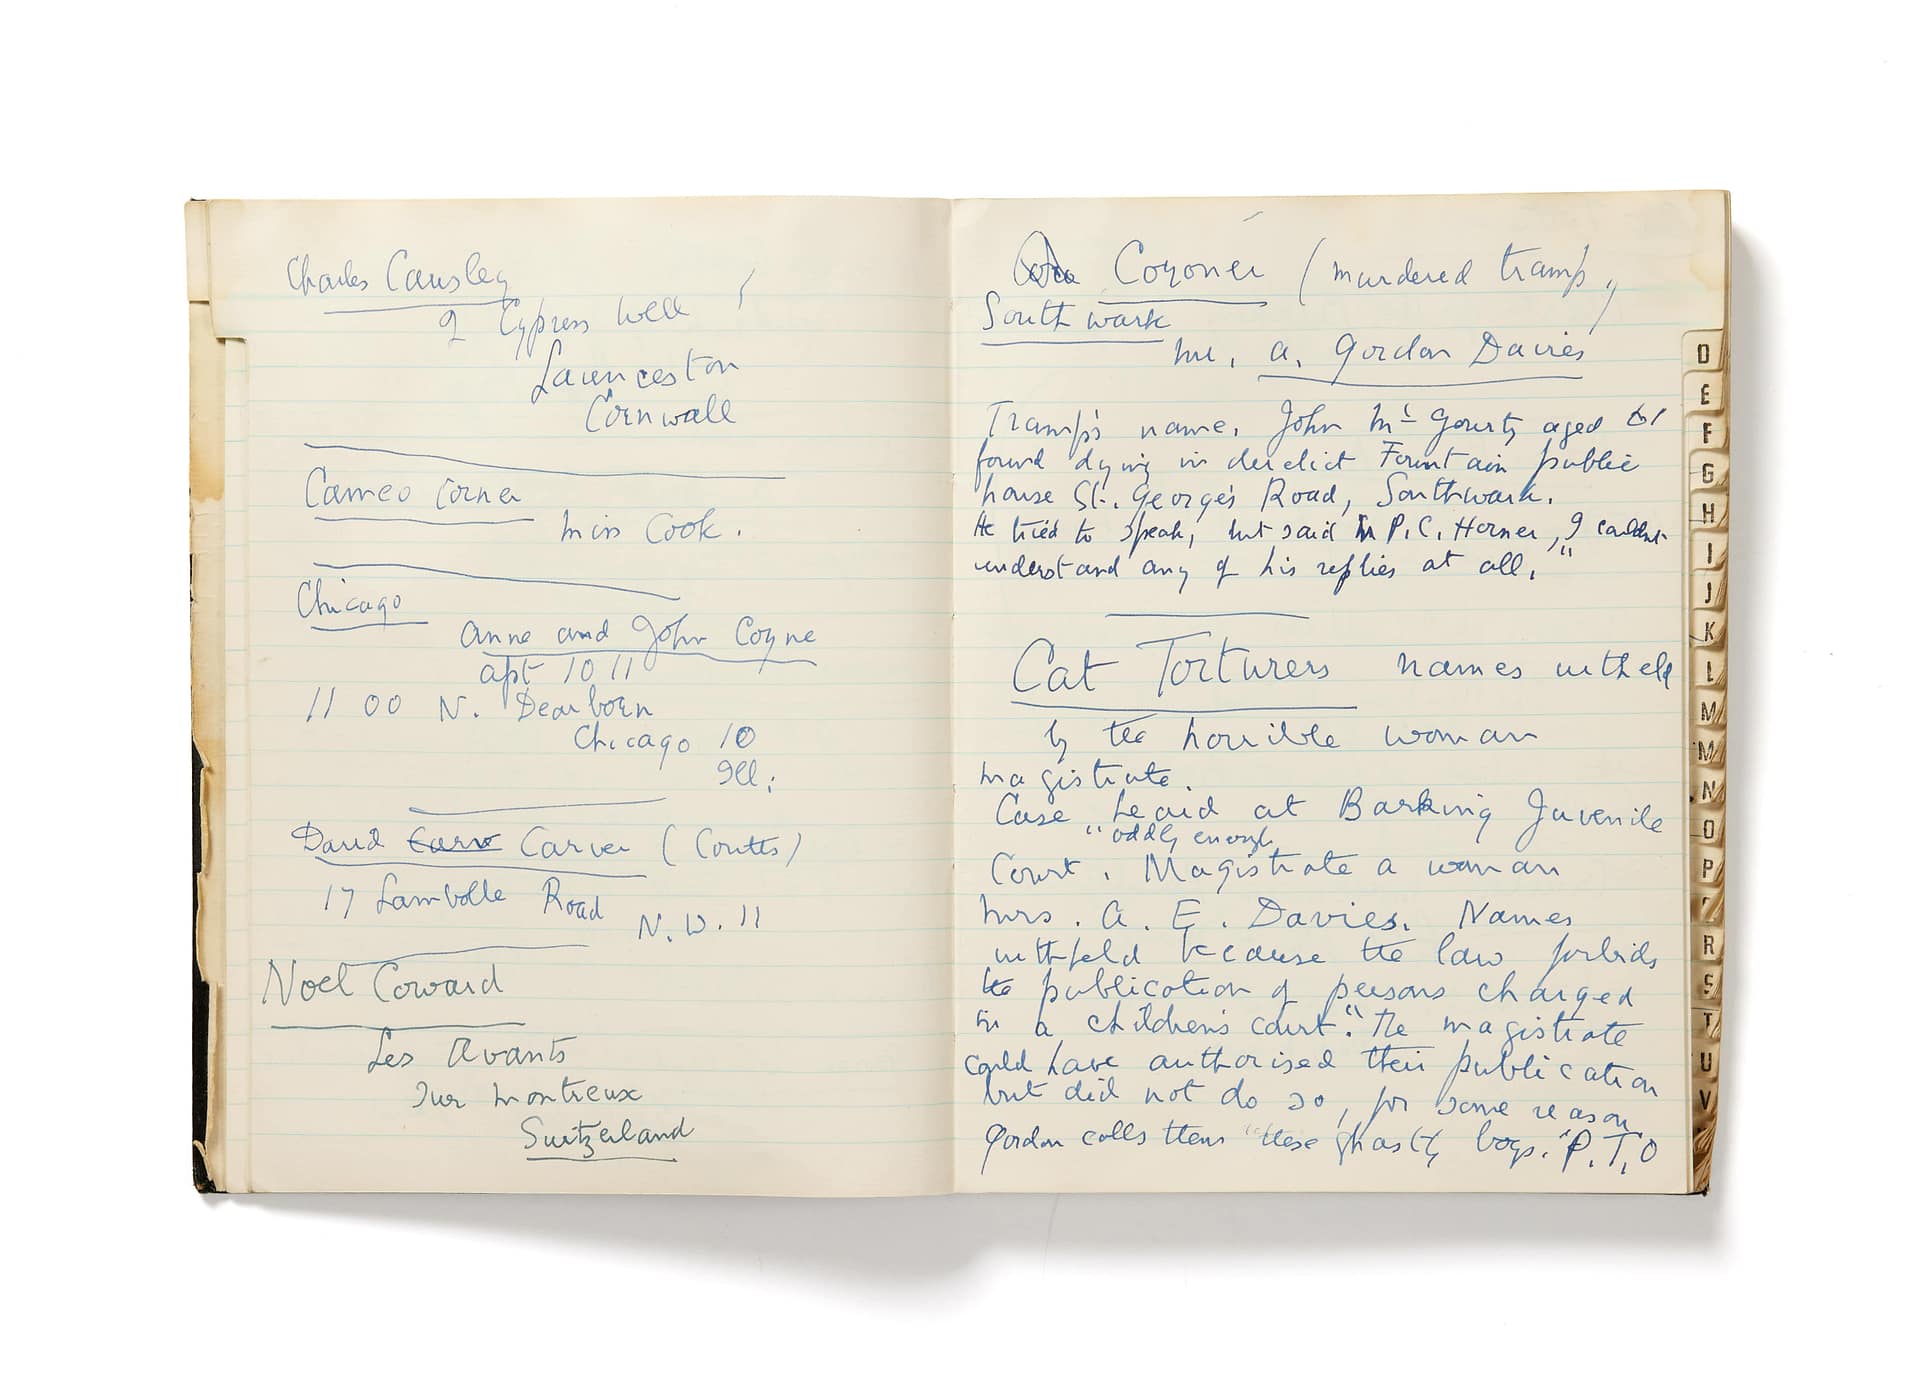 Charles Causley
2 Cypress Well
Launceston
Cornwall
Cameo Corner
Miss Cook.
Chicago
Anne and John Coyne
apt 10 11
11 00 N. Dearborn
Chicago 10
Ill;
David Carv Carver (Coutts)
17 Lambolle Road
N.W. 11
Noel Coward
Les Avants
Sur Montreux
Switzerland
Coroner (murdered tramp,
Southwark
Mr. A. Gordon Davies
Tramp's name. John Mc Gourty aged 61
found dying in derelict Fountain public
house St. George's Road, Southwark.
He tried to speak, but said P.C. Horner, "I couldn't
understand any of his replies at all."
Cat Torturers names witheld
by the horrible woman
magistrate.
Case heard at Barking Juvenile
"oddly enough
Court. Magistrate a woman
Mrs. A. E. Davies. Names
withheld because the law forbids
the publication of persons charged
in a children's court". The magistrate
could have authorised their publication
but did not do so, for some reason
Gordon calls them "these ghastly boys." P.T.O
D
E
F
G
H
I
J
K
L
M
M
N
O
P
R
S
T
U
V